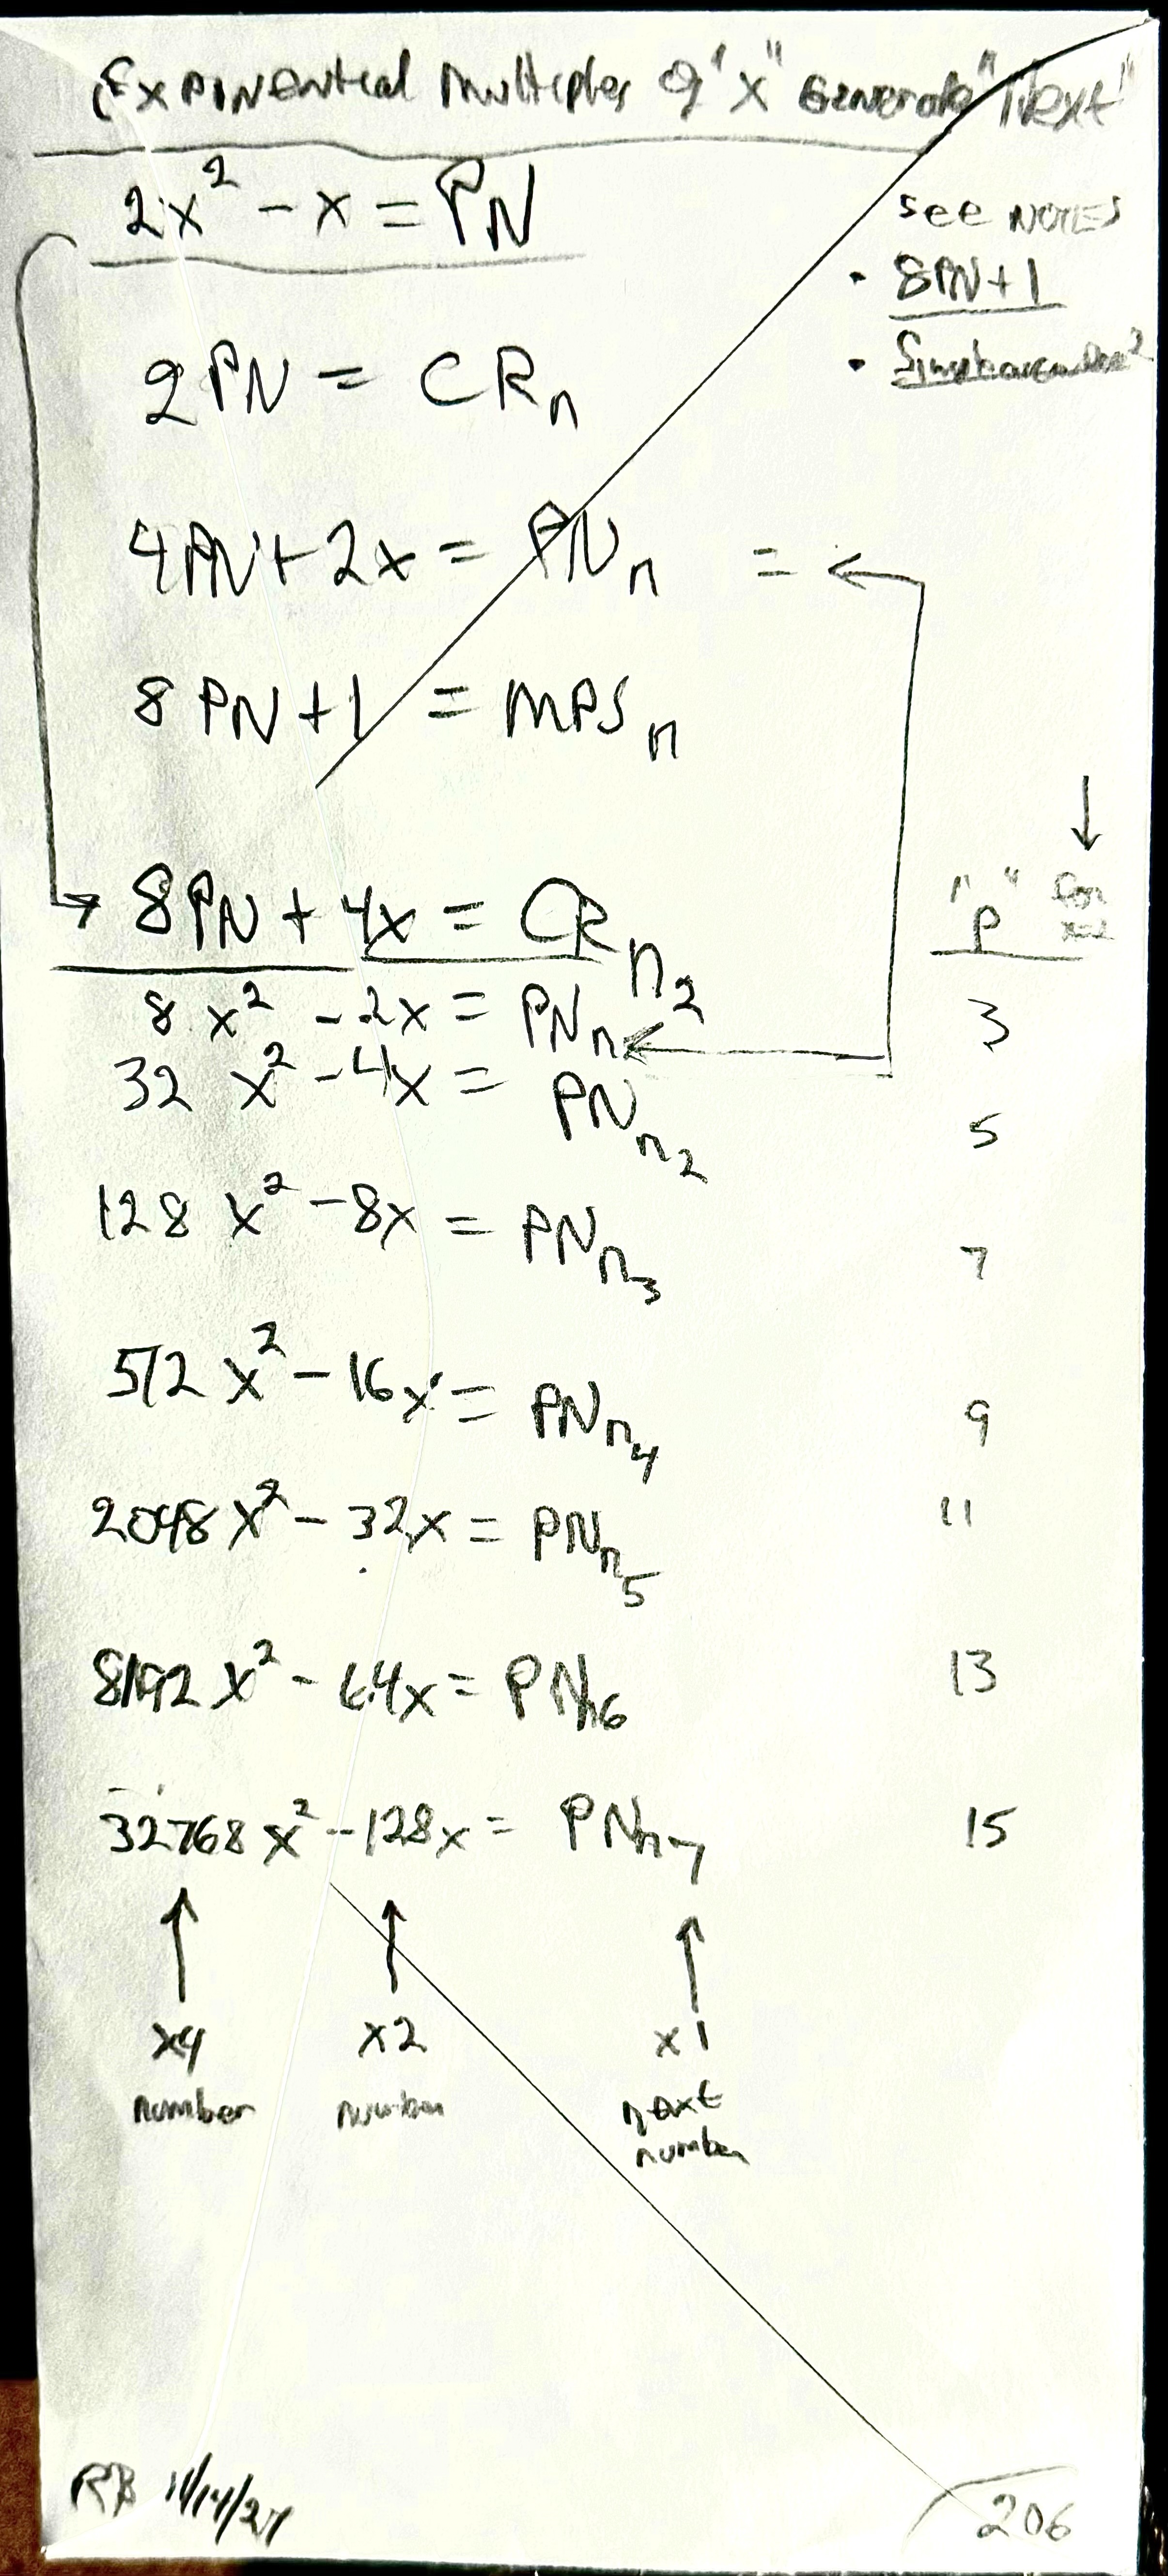 Exponential Multiples of "x" Generate "Next"
2x² - x = PN
see NOTES
• 8PN+1
2PN = CRn
4PN + 2x = PNn = ←
8PN + 1 = MPSn
↓
→ 8PN + 4x = CRn2
"P" for x=2
8x² - 2x = PNn ← 3
32x² - 4x = PNn2 5
128x² - 8x = PNn3 7
512x² - 16x = PNn4 9
2048x² - 32x = PNn5 11
8192x² - 64x = PNn6 13
32768x² - 128x = PNn7 15
↑ ↑ ↑
x4 x2 x1
number number next
number
RB 11/14/24
206